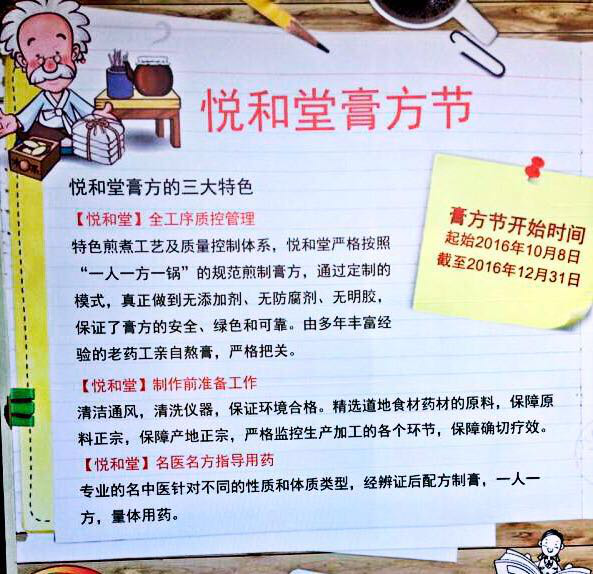 悦和堂膏方节
悦和堂膏方的三大特色
【悦和堂】全工序质控管理
特色煎煮工艺及质量控制体系，悦和堂严格按照
“一人一方一锅”的规范煎制膏方，通过定制的
模式，真正做到无添加剂、无防腐剂、无明胶，
保证了膏方的安全、绿色和可靠。由多年丰富经
验的老药工亲自熬膏，严格把关。
【悦和堂】制作前准备工作
清洁通风，清洗仪器，保证环境合格。精选道地食材药材的原料，保障原
料正宗，保障产地正宗，严格监控生产加工的各个环节，保障确切疗效。
【悦和堂】名医名方指导用药
专业的名中医针对不同的性质和体质类型，经辨证后配方制膏，一人一
方，量体用药。
膏方节开始时间
起始2016年10月8日
截至2016年12月31日